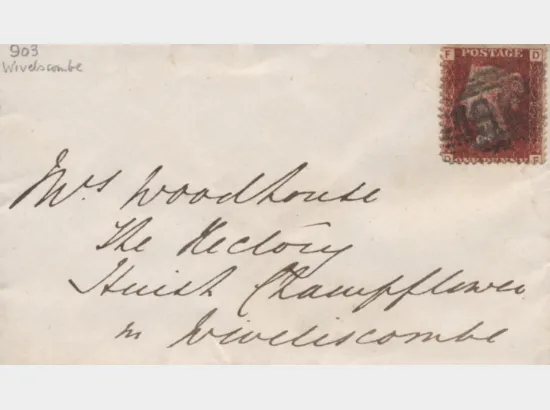 903
Wivelscombe
F POSTAGE D
D F
Mrs Woodhouse
The Rectory
Huish Champflower
nr Wiveliscombe